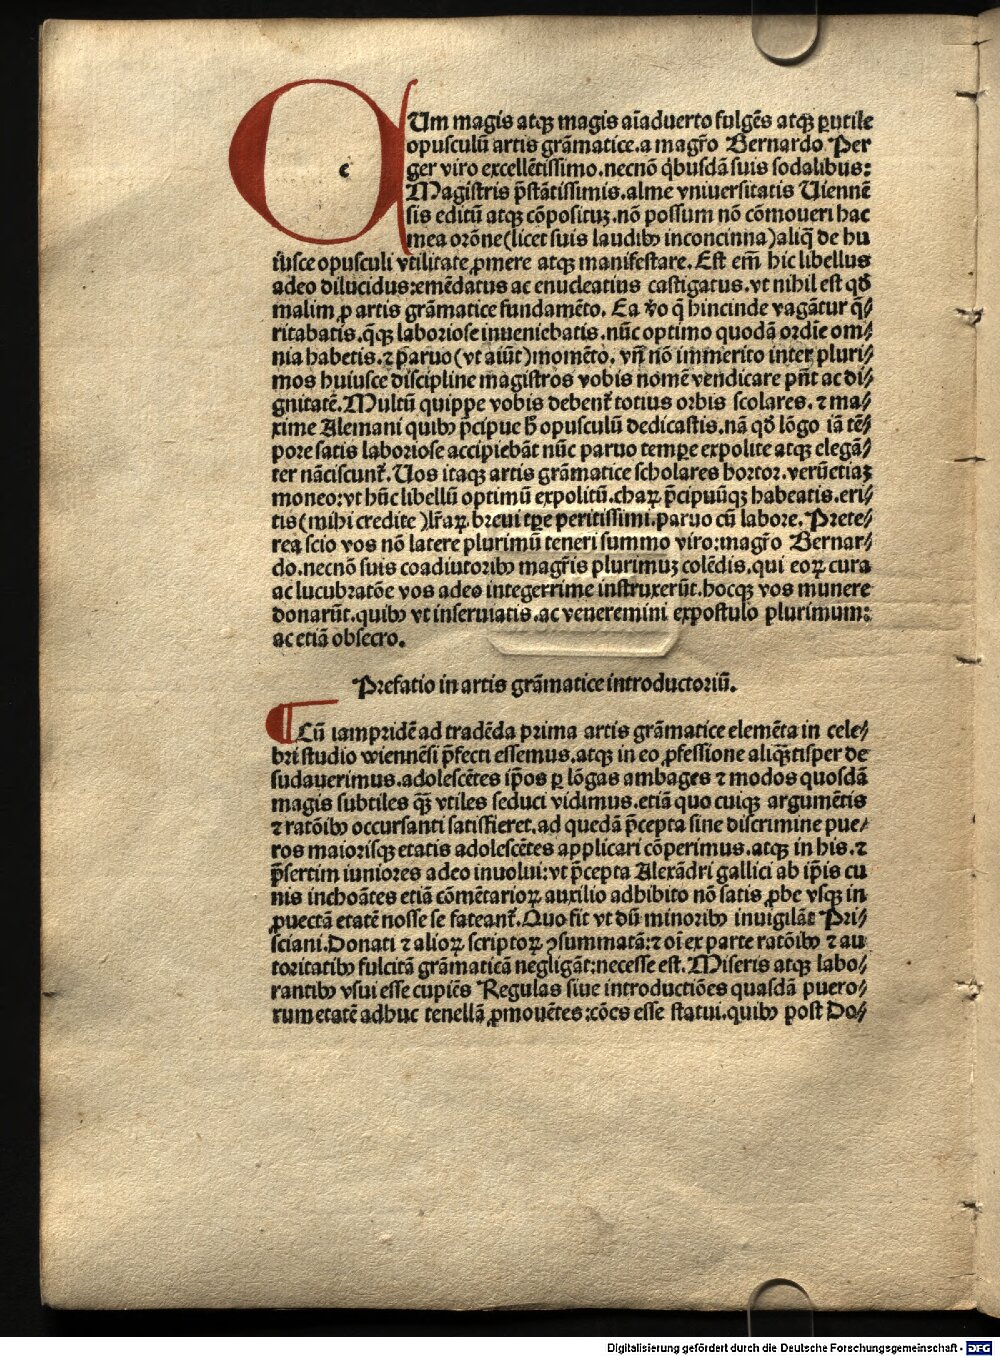 c
Um magis atqꝫ magis aīaduerto fulgēs atqꝫ ꝑutile
opusculū artis grāmatice.a magr̄o Bernardo Per
ger viro excellētissimo.necnō q̇busdā suis sodalibus:
Magistris p̄stātissimis.alme vniuersitatis Uiennē
sis editū atqꝫ cōpositūꝫ.nō possum nō cōmoueri hac
mea orōne(licet suis laudibꝰ inconcinna)aliq̄ de hu
iusce opusculi vtilitate ꝓmere atqꝫ manifestare. Est em̄ hic libellus
adeo dilucidus:emēdatus ac enucleatius castigatus.vt nihil est qḋ
malim ꝓ artis grāmatice fundamēto. Ea v̇o q̄ hincinde vagātur q̄⸗
ritabatis.q̄qꝫ laboriose inueniebatis.nūc optimo quodā ordīe om⸗
nia habetis.⁊ p̄aruo(vt aiūt)momēto. vn̄ nō immerito inter pluri⸗
mos huiusce discipline magistros vobis nomē vendicare pn̄t ac di⸗
gnitatē.Multū quippe vobis debent̄ totius orbis scolares.⁊ ma⸗
xime Alemani quibꝰ p̄cipue h̄ opusculū dedicastis.nā qḋ lōgo iā tē⸗
pore satis laboriose accipiebāt nūc paruo tempꝛe expolite atqꝫ elegā⸗
ter nāciscunt̄.Uos itaqꝫ artis grāmatice scholares hortor.verūetiaꝫ
moneo:vt hūc libellū optimū expolitū.chaꝝ p̄cipuūqꝫ habeatis.eri⸗
tis(mihi credite )lr̄aꝝ breui tꝑe peritissimi.paruo cū labore. Prete⸗
rea scio vos nō latere plurimū teneri summo viro:magr̄o Bernar⸗
do.necnō suis coadiutoribꝰ magr̄is plurimuꝫ colēdis.qui eoꝝ cura
ac lucubratōe vos adeo integerrime instruxerūt.hocqꝫ vos munere
donarūt.quibꝰ vt inseruiatis.ac veneremini expostulo plurimum:
ac etiā obsecro.
Prefatio in artis grāmatice introductoriū.
¶ Cū iampridē ad tradēda prima artis grāmatice elemēta in cele⸗
bri studio wiennēsi p̄fecti essemus.atqꝫ in eo ꝓfessione aliq̄tisper de
sudauerimus.adolescētes ip̄os ꝑ lōgas ambages ⁊ modos quosdā
magis subtiles q̄ꝫ vtiles seduci vidimus.etiā quo cuiqꝫ argumētis
⁊ ratōibꝰ occursanti satisfieret.ad quedā p̄cepta sine discrimine pue⸗
ros maiorisqꝫ etatis adolescētes applicari cōperimus.atqꝫ in his.⁊
p̄sertim iuniores adeo inuolui:vt p̄cepta Alexādri gallici ab ip̄is cu
nis inchoātes etiā cōmētarioꝝ auxilio adhibito nō satis ꝓbe vsqꝫ in
ꝓuectā etatē nosse se fateant̄.Quo fit vt dū minoribꝰ inuigilāt Pri⸗
sciani.Donati ⁊ alioꝝ scriptoꝝ ꝯsummatā:⁊ oī ex parte ratōibꝰ ⁊ au
toritatibꝰ fulcitā grāmaticā negligāt:necesse est.Miseris atqꝫ labo⸗
rantibꝰ vsui esse cupiēs Regulas siue introductiōes quasdā puero⸗
rum etatē adhuc tenellā ꝓmouētes:cōcs esse statui.quibꝰ post Do⸗
Digitalisierung gefördert durch die Deutsche Forschungsgemeinschaft - DFG